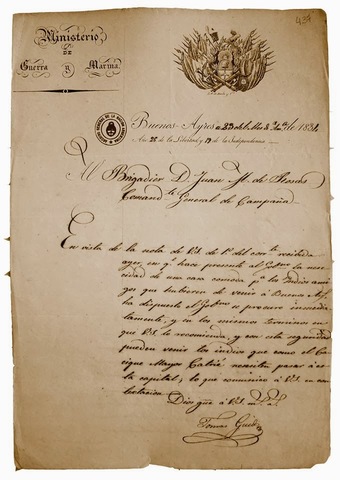 434
Ministerio
DE
Guerra y Marina.
Buenos-Ayres a 23 de 1834
Año 25 de la Libertad y 19 de la Independencia
Al Brigadier D. Juan M. de Rosas
Comand.te General de Campaña
En vista de la nota de V.S. de 1º del corr.te recibida
ayer, en q.e hace presente al Gob.no la nece-
cidad de una casa comoda p.a los Indios ami-
gos que hubieren de venir à Buenos Ay.s
ha dispuesto el Gob.no se procure inmedia-
tamente, y en los mismos terminos en
que V.S. la recomienda, y con esta seguridad
pueden venir los indios que como el Ca-
cique Mayor Catrié necesiten pasar à es-
ta capital; lo que comunico à V.S. en con-
testacion.
Dios gue à V.S. m.s a.s
Tomas Guido